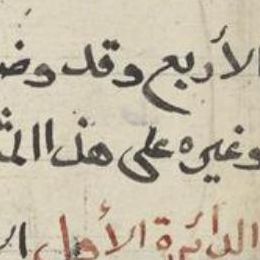 الأربع وقد وضـ
وغيره على هذا المثـ
الدائرة الأولى